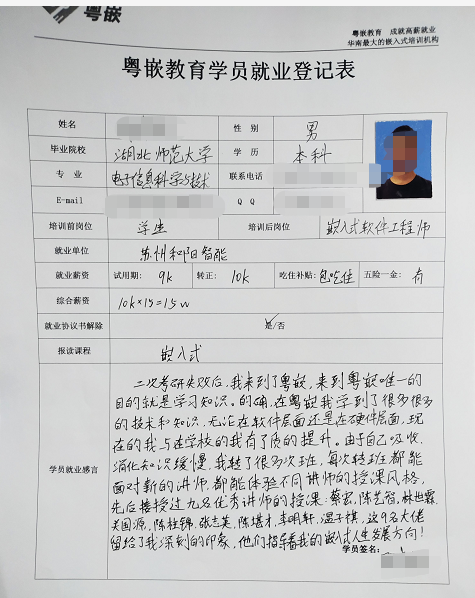 粤嵌
粤嵌教育 成就高薪就业
华南最大的嵌入式培训机构
粤嵌教育学员就业登记表
姓名 性别 男
毕业院校 湖北师范大学 学历 本科
专业 电子信息科学与技术 联系电话
E-mail QQ
培训前岗位 学生 培训后岗位 嵌入式软件工程师
就业单位 苏州和阳智能
就业薪资 试用期: 9k 转正: 10k 吃住补贴: 包吃住 五险一金: 有
综合薪资 10k×15=15w
就业协议书解除 是/否
报读课程 嵌入式
学员就业感言
二次考研失败后,我来到了粤嵌,来到粤嵌唯一的
目的就是学习知识。的确,在粤嵌我学到了很多很多
的技术和知识,无论在软件层面还是在硬件层面,现
在的我与在学校的我有了质的提升。由于自己吸收、
消化知识缓慢,我转了很多次班,每次转班都能
面对新的讲师,都能体验不同讲师的授课风格,
先后接受过九名优秀讲师的授课,蔡宏,陈艺智,林世霖,
关国源,陈桂锦,张志英,陈堪才,李明轩,温子祺,这9名大佬
留给了我深刻的印象,他们指导着我的嵌入式人生发展方向!
学员签名: